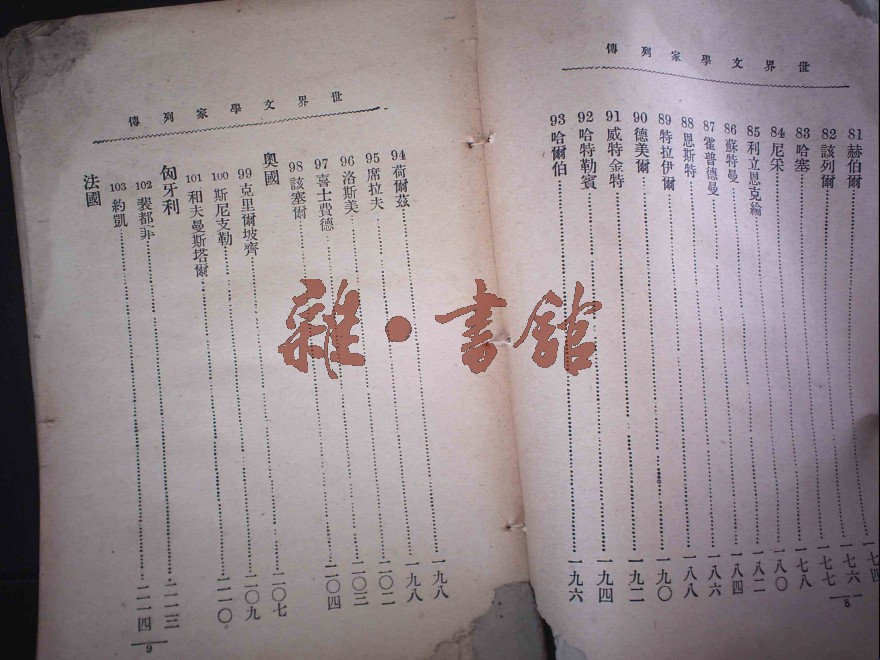 世界文學家列傳
81 赫伯爾 一七四
82 該列爾 一七六
83 哈塞 一七七
84 尼采 一七八
85 利立恩克綸 一八〇
86 蘇特曼 一八二
87 霍普德曼 一八四
88 恩斯特 一八六
89 特拉伊爾 一八八
90 德美爾 一九〇
91 威特金特 一九二
92 哈特勒賓 一九四
93 哈爾伯 一九六
8
世界文學家列傳
94 荷爾茲 一九八
95 席拉夫 一九八
96 洛斯美 二〇二
97 喜士費德 二〇三
98 該塞爾 二〇四
奧國
99 克里爾坡齊 二〇七
100 斯尼支勒 二〇九
101 和夫曼斯塔爾 二一〇
匈牙利
102 裴都菲 二一三
103 約凱 二一四
法國
9
雜·書館